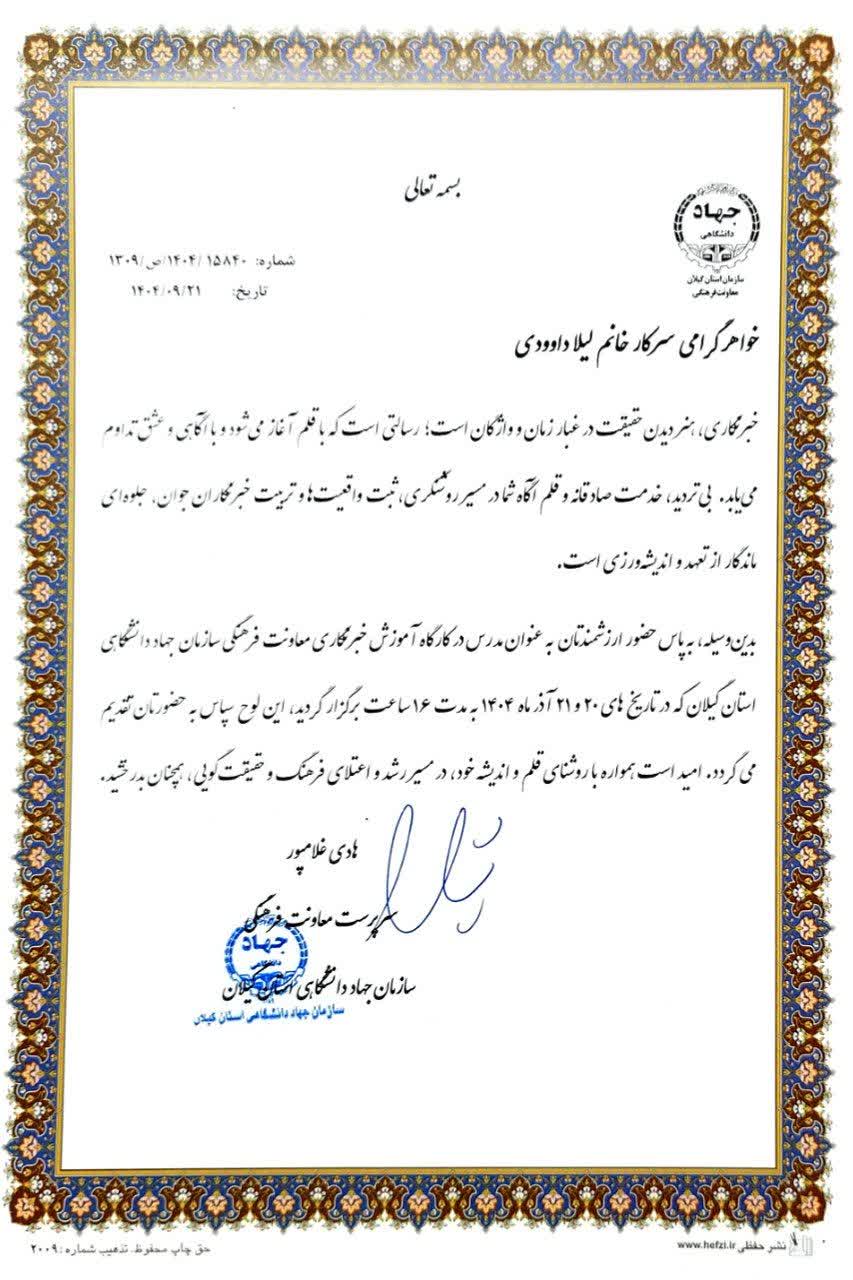 بسمه تعالی
جهاد
دانشگاهی
سازمان استان گیلان
معاونت فرهنگی
شماره: ۱۵۸۴۰ /۱۴۰۴/ص/۱۳۰۹
تاریخ: ۱۴۰۴/۰۹/۲۱
خواهر گرامی سرکار خانم لیلا داوودی
خبرنگاری، هنر دیدن حقیقت در غبار زمان و واژگان است؛ رسالتی است که با قلم آغاز می‌شود و با آگاهی و عشق تداوم
می‌یابد. بی‌تردید، خدمت صادقانه و قلم آگاه شما در مسیر روشنگری، ثبت واقعیت‌ها و تربیت خبرنگاران جوان، جلوه‌ای
ماندگار از تعهد و اندیشه‌ورزی است.
بدین‌وسیله، به پاس حضور ارزشمندتان به عنوان مدرس در کارگاه آموزش خبرنگاری معاونت فرهنگی سازمان جهاد دانشگاهی
استان گیلان که در تاریخ های ۲۰ و ۲۱ آذر ماه ۱۴۰۴ به مدت ۱۶ ساعت برگزار گردید، این لوح سپاس به حضورتان تقدیم
می گردد. امید است همواره با روشنای قلم و اندیشه خود، در مسیر رشد و اعتلای فرهنگ و حقیقت‌گویی، همچنان بدرخشید.
هادی غلامپور
سرپرست معاونت فرهنگی
جهاد
دانشگاهی
سازمان جهاد دانشگاهی استان گیلان
سازمان جهاد دانشگاهی استان گیلان
نشر حفظی www.hefzi.ir
حق چاپ محفوظ. تذهیب شماره: ۲۰۰۹